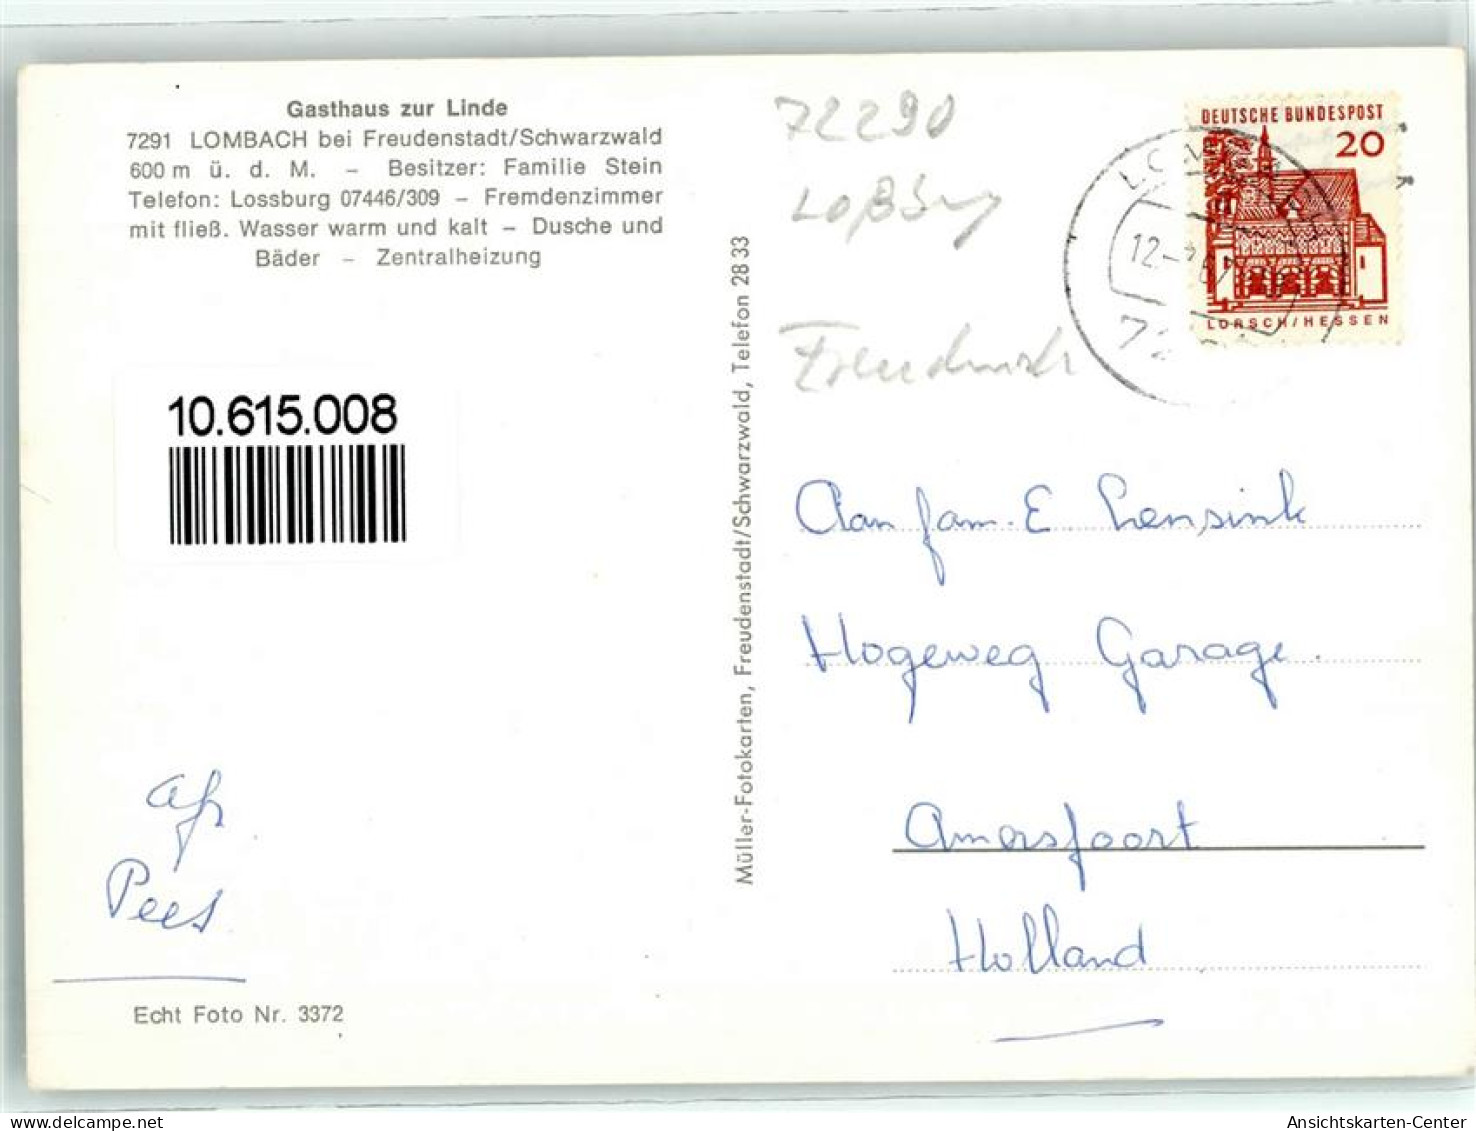 Gasthaus zur Linde
7291 LOMBACH bei Freudenstadt/Schwarzwald
600 m ü. d. M. – Besitzer: Familie Stein
Telefon: Lossburg 07446/309 – Fremdenzimmer
mit fließ. Wasser warm und kalt – Dusche und
Bäder – Zentralheizung
10.615.008
afz
Pees
Echt Foto Nr. 3372
Müller-Fotokarten, Freudenstadt/Schwarzwald, Telefon 28 33
72290
Loßburg
DEUTSCHE BUNDESPOST
20
LORSCH/HESSEN
Aan fam. E Lensink
Hogeweg Garage.
Amersfoort
Holland
oldthing.net
Ansichtskarten-Center